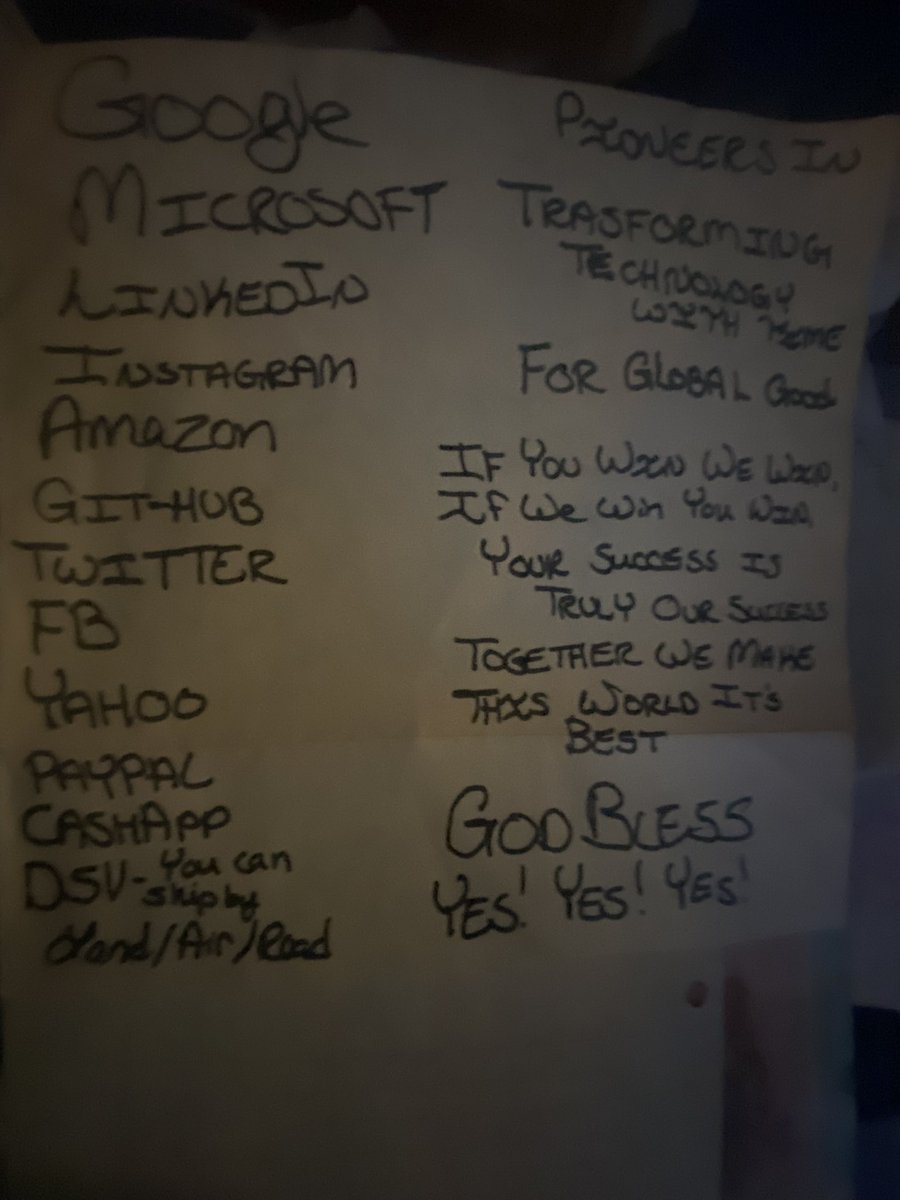 Google
MICROSOFT
LINKEDIN
INSTAGRAM
Amazon
GIT-HUB
TWITTER
FB
YAHOO
PAYPAL
CASHAPP
DSV- You can
ship by
/Air/Road
PIONEERS IN
TRASFORMING
TECHNOLOGY
WITH
FOR GLOBAL Good
IF YOU WIN WE WIN,
IF We Win You WIN,
YOUR SUCCESS IS
TRULY OUR SUCCESS
TOGETHER WE MAKE
THIS WORLD IT'S
BEST
GOD BLESS
YES! YES! YES!